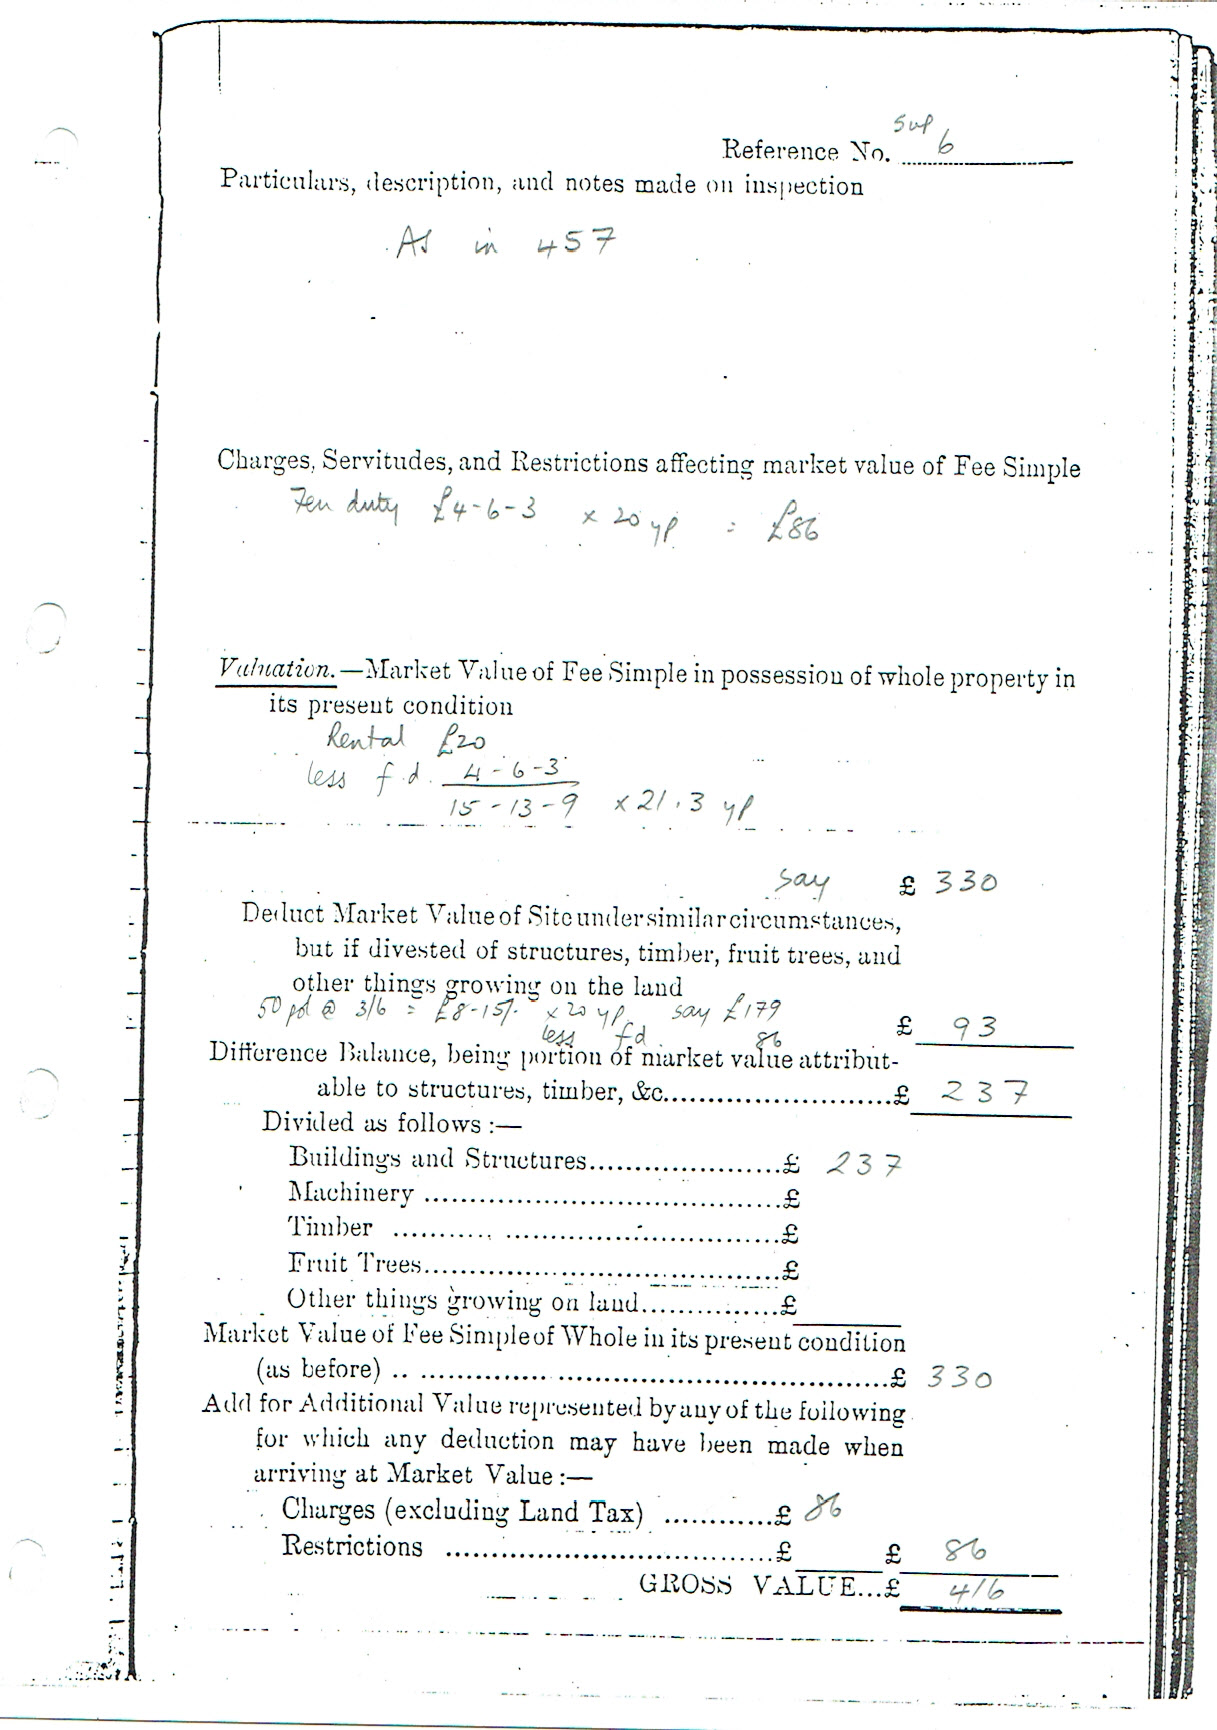 sup
Reference No. 6
Particulars, description, and notes made on inspection
As in 457
Charges, Servitudes, and Restrictions affecting market value of Fee Simple
Feu duty £4-6-3 x 20 yp = £86
Valuation.—Market Value of Fee Simple in possession of whole property in
its present condition
Rental £20
less f.d. 4-6-3
15-13-9 x 21.3 yp
say £ 330
Deduct Market Value of Site under similar circumstances,
but if divested of structures, timber, fruit trees, and
other things growing on the land
50 pol @ 3/6 = £8-15/- x 20 yp say £179
less fd 86 £ 93
Difference Balance, being portion of market value attribut-
able to structures, timber, &c. £ 237
Divided as follows :—
Buildings and Structures £ 237
Machinery £
Timber £
Fruit Trees £
Other things growing on land £
Market Value of Fee Simple of Whole in its present condition
(as before) £ 330
Add for Additional Value represented by any of the following
for which any deduction may have been made when
arriving at Market Value :—
Charges (excluding Land Tax) £ 86
Restrictions £ £ 86
GROSS VALUE...£ 416